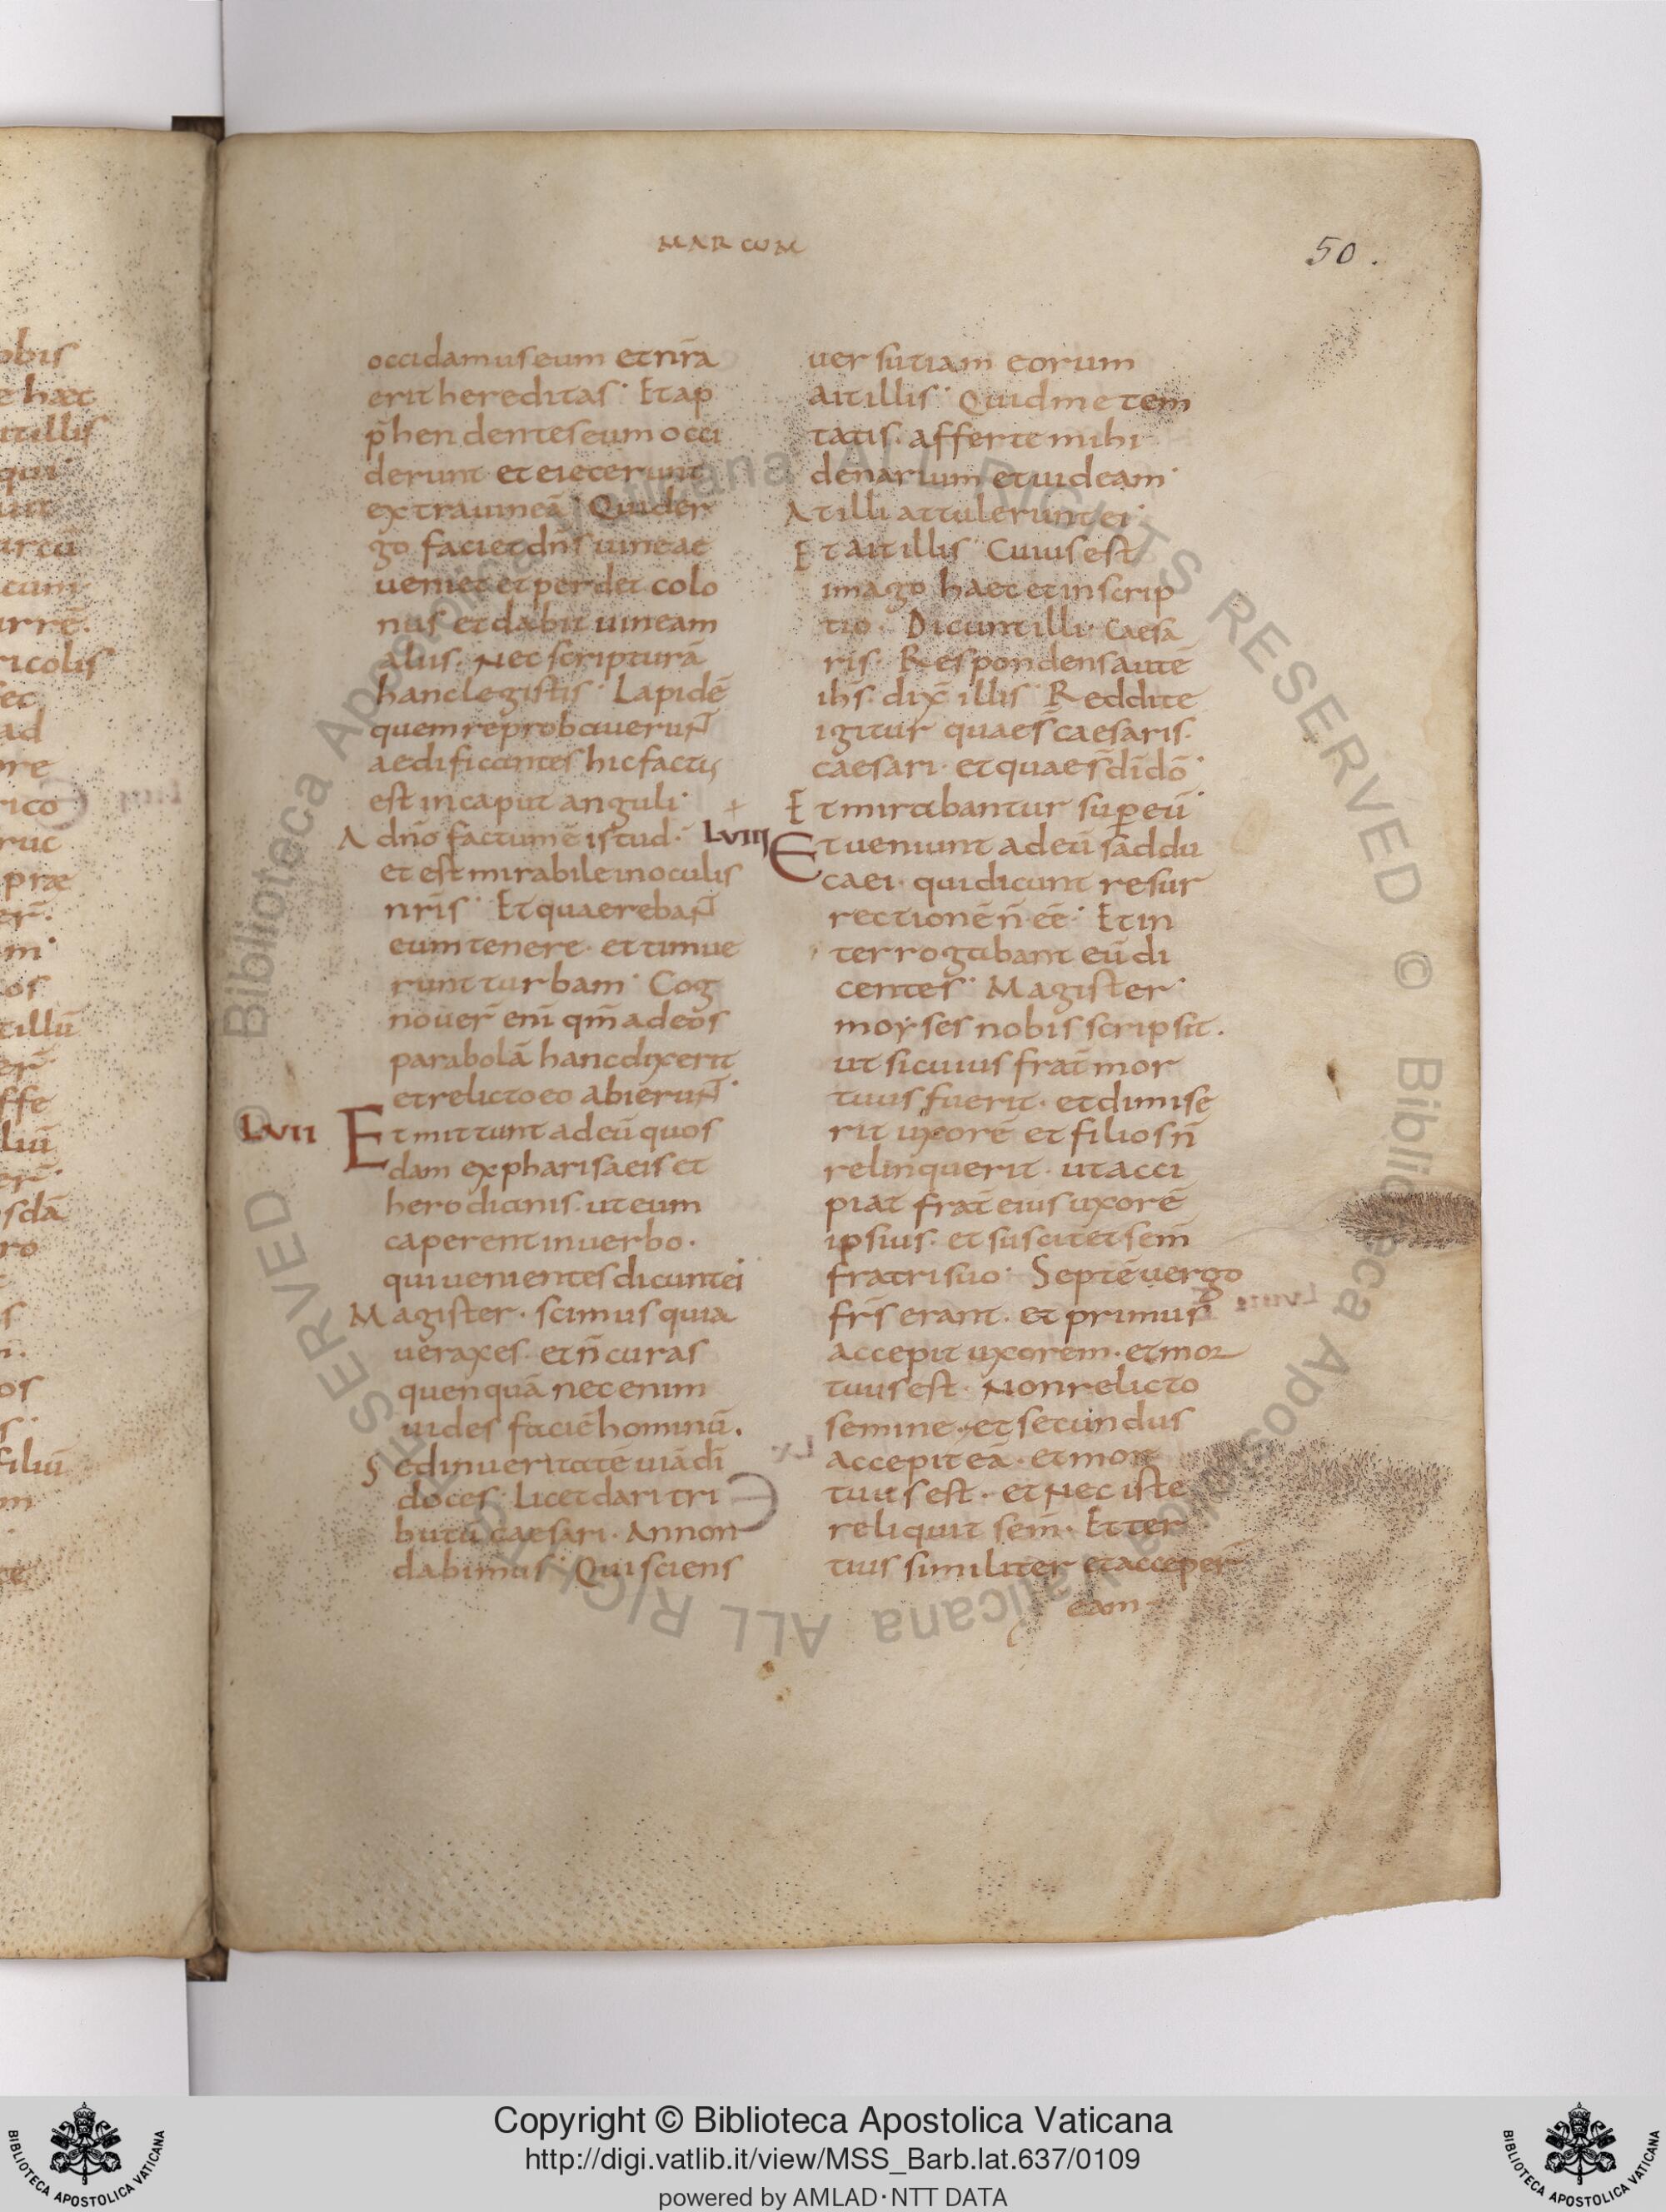 MARCUM
50.
occidamus eum et nr̄a
erit hereditas· Et ap
p̄hendentes eum occi
derunt et eiecerunt
extra uineā· Quid er
go faciet dn̄s uineae
ueniet et perdet colo
nus et dabit uineam
alius· Nec scripturā
hanc legistis· Lapidē
quem reprobauerunt̄
aedificantes hic factus
est in caput anguli·
A dn̄o factum ē istud·
et est mirabile in oculis
nr̄is· Et quaerebant̄
eum tenere· et timue
runt turbam· Cog
nouer̄ enī qm̄ ad eos
parabolā hanc dixerit
et relicto eo abierunt̄·
LVII Et mittunt ad eū quos
dam ex pharisaeis et
herodianis· ut eum
caperent in uerbo·
qui uenientes dicunt ei
Magister· scimus quia
uerax es· et n̄ curas
quenquā nec enim
uides faciē hominū·
Sed in ueritatē uiā dī
doces· Licet dari tri
butū caesari· An non
dabimus· Qui sciens
uersutiam eorum
ait illis· Quid me tem
tatis· afferte mihi
denarium et uideam·
At illi attulerunt ei·
Et ait illis· Cuius est
imago haec et inscrip
tio· Dicunt illi· Caesa
ris· Respondens autē
ihs̄· dix̄ illis· Reddite
igitur quae s̄ caesaris·
caesari· et quae s̄ dī dō·
Et mirabantur super eū·
LVIII Et ueniunt ad eū saddu
caei· qui dicunt resur
rectionē n̄ eē· Et in
terrogabant eū di
centes· Magister·
moyses nobis scripsit·
ut si cuius frat̄ mor
tuus fuerit· et dimise
rit uxorē et filios n̄
relinquerit· ut acci
piat frat̄ eius uxorē
ipsius· et suscitet sem̄
fratri suo· Septē uergo
fr̄s erant· et primus
accepit uxorem· et mor
tuus est· Non relicto
semine· et secundus
accepit eā· et mor
tuus est· et nec iste
reliquit sem̄· Et ter
tius similiter et acceper̄
eam
Copyright © Biblioteca Apostolica Vaticana
http://digi.vatlib.it/view/MSS_Barb.lat.637/0109
powered by AMLAD·NTT DATA
BIBLIOTECA APOSTOLICA VATICANA
BIBLIOTECA APOSTOLICA VATICANA
© Biblioteca Apostolica Vaticana ALL RIGHTS RESERVED © Biblioteca Apostolica Vaticana ALL RIGHTS RESERVED